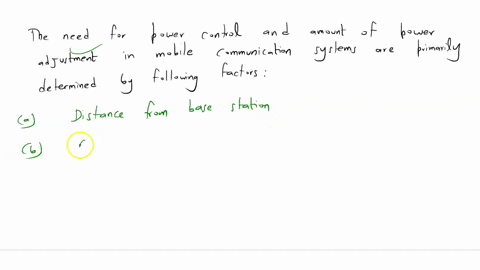 The need for power control and amount of power
adjustment in mobile communication systems are primarily
determined by following factors:
(a) Distance from base station
(b)